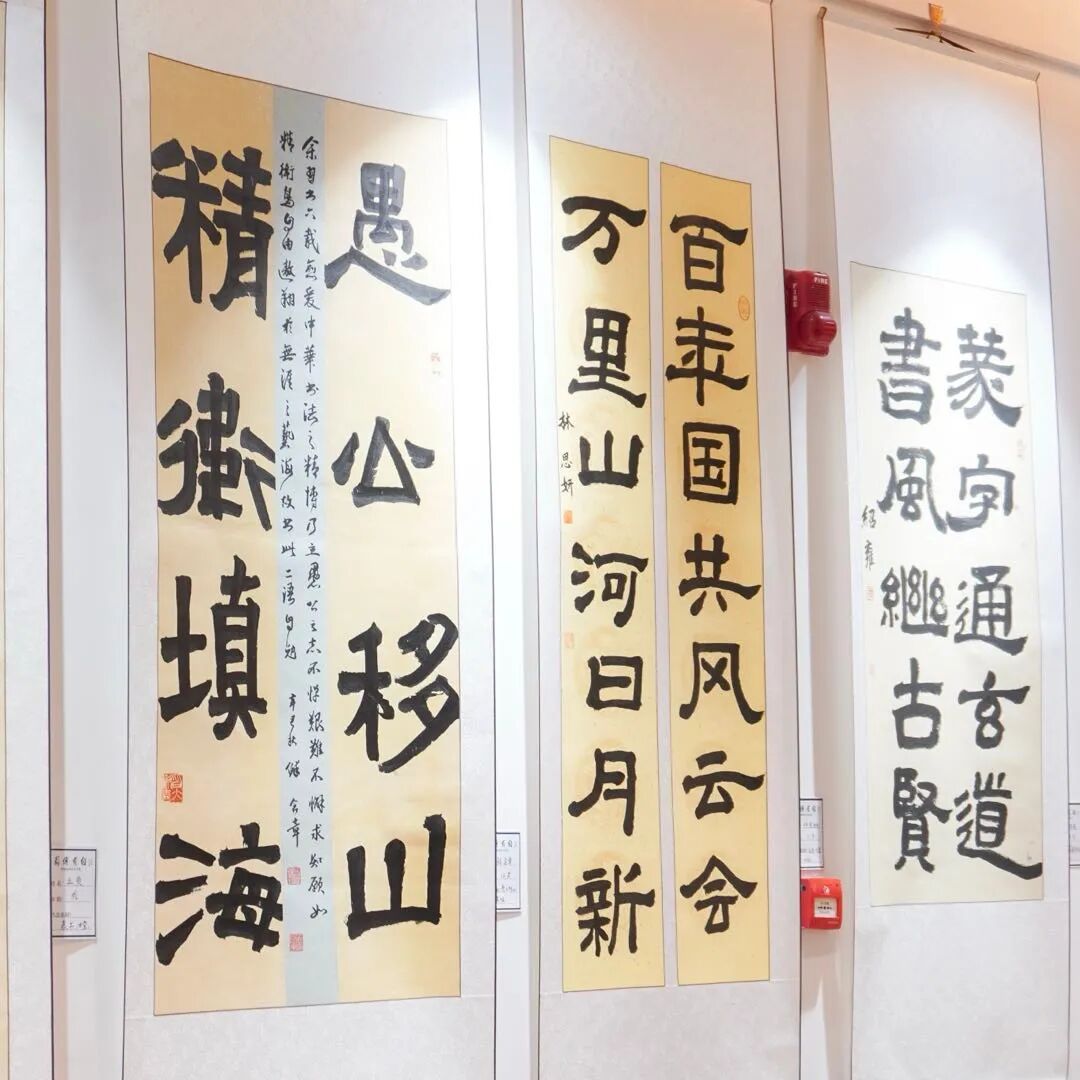 愚公移山
余習书六載熱爱中華书法之精博乃立愚公之志不懼艱難不懈求知願如
精衛鸟自由遨翔於無涯之藝海故书此二語自勉
精衛填海
百年国共风云会
万里山河日月新
林思妍
FIRE
篆字通玄道
書風繼古賢
紹雍